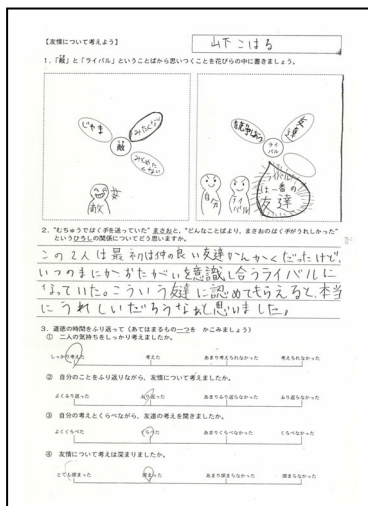 【友情について考えよう】
山下こはる
1.「敵」と「ライバル」ということばから思いつくことを花びらの中に書きましょう。
敵
じゃま
みとめたくない
敵
ライバル
競争あい
友達
自分
ライバル
ライバルは一番の友達
2.“むちゅうではく手を送っていた”まさおと、“どんなことばより、まさおのはく手がうれしかった”
というひろしの関係についてどう思いますか。
この2人は最初は仲の良い友達かんかくだったけど、
いつのまにかおたがいを意識し合うライバルに
なっていた。こういう友達に認めてもらえると、本当
にうれしいだろうなぁと思いました。
3.道徳の時間をふり返って(あてはまるもの一つを かこみましょう)
① 二人の気持ちをしっかり考えましたか。
しっかり考えた 考えた あまり考えられなかった 考えられなかった
② 自分のことをふり返りながら、友情について考えましたか。
よくふり返った ふり返った あまりふり返らなかった ふり返らなかった
③ 自分の考えとくらべながら、友達の考えを聞きましたか。
よくくらべた くらべた あまりくらべなかった くらべなかった
④ 友情について考えは深まりましたか。
とても深まった 深まった あまり深まらなかった 深まらなかった